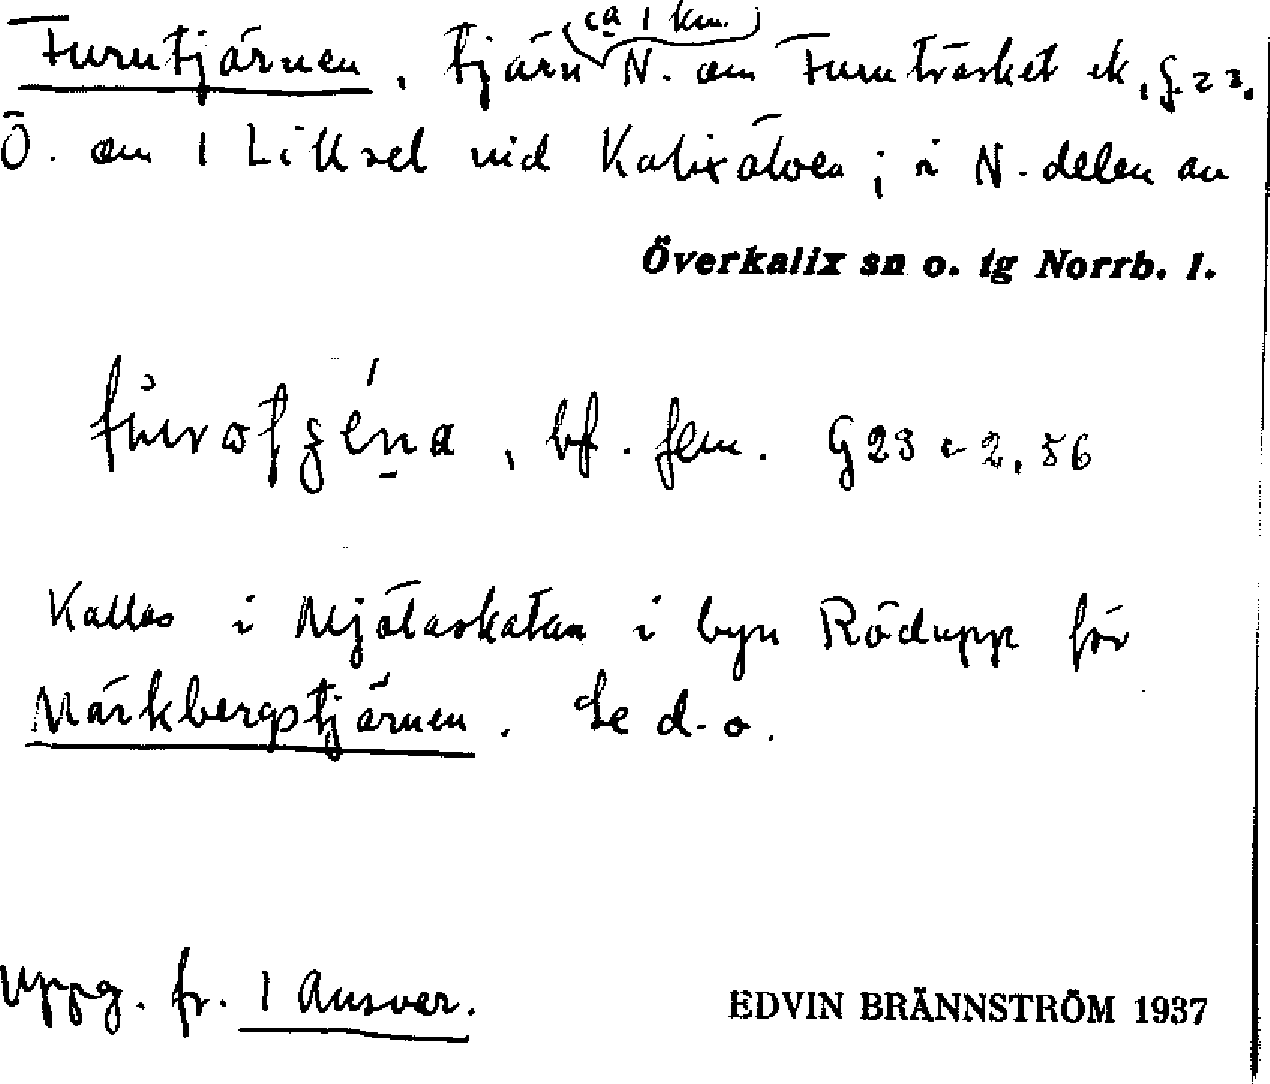 Furutjärnen, tjärn ca 1 km. N. om Furuträsket ek, G 23.
Ö. om 1 Lillsel vid Kalixälven; i N-delen av
Överkalix sn o. tg Norrb. l.
bf. fem. G 23 c 2, 56
Kallas i Mjölaskatan i byn Rödupp för
Märkbergstjärnen. Se d. o.
Uppg. fr. 1 Ansver.
EDVIN BRÄNNSTRÖM 1937